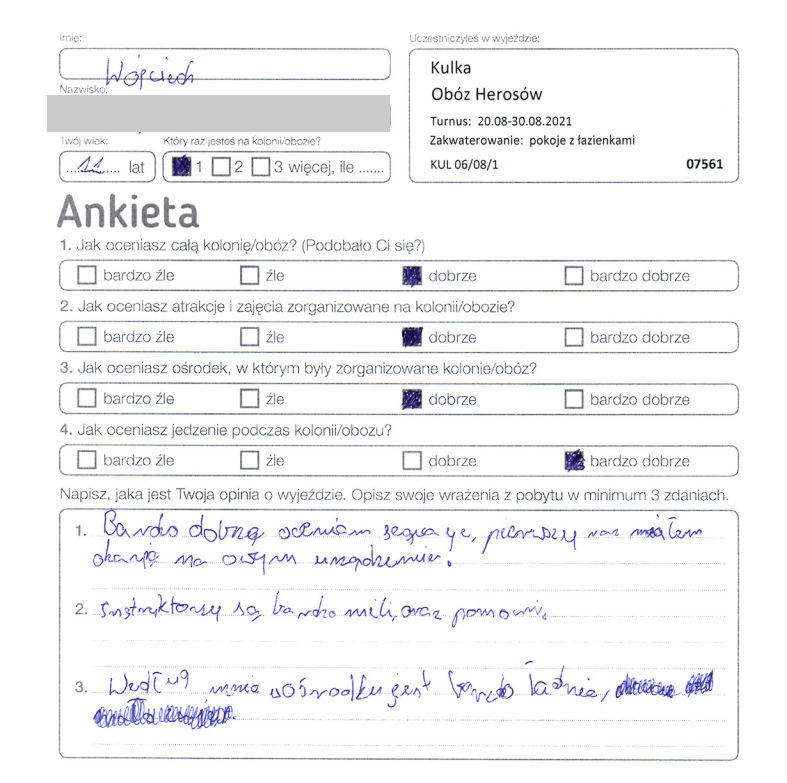 Imię:
Wojciech
Nazwisko:
Twój wiek:
11 lat
Który raz jesteś na kolonii/obozie?
1 2 3 więcej, ile .......
Uczestniczyłeś w wyjeździe:
Kulka
Obóz Herosów
Turnus: 20.08-30.08.2021
Zakwaterowanie: pokoje z łazienkami
KUL 06/08/1 07561
Ankieta
1. Jak oceniasz całą kolonię/obóz? (Podobało Ci się?)
bardzo źle źle dobrze bardzo dobrze
2. Jak oceniasz atrakcje i zajęcia zorganizowane na kolonii/obozie?
bardzo źle źle dobrze bardzo dobrze
3. Jak oceniasz ośrodek, w którym były zorganizowane kolonie/obóz?
bardzo źle źle dobrze bardzo dobrze
4. Jak oceniasz jedzenie podczas kolonii/obozu?
bardzo źle źle dobrze bardzo dobrze
Napisz, jaka jest Twoja opinia o wyjeździe. Opisz swoje wrażenia z pobytu w minimum 3 zdaniach.
1. Bardzo dobrze oceniam pierwszy raz miałem
okazję na urządzeniu.
2. Instruktorzy są bardzo mili, oraz pomocni.
3. Według mnie w ośrodku jest bardzo ładnie,